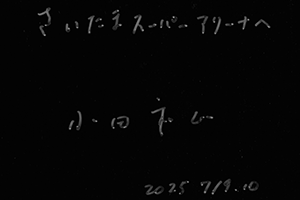 さいたまスーパーアリーナへ
小田和正
2025 7/9.10